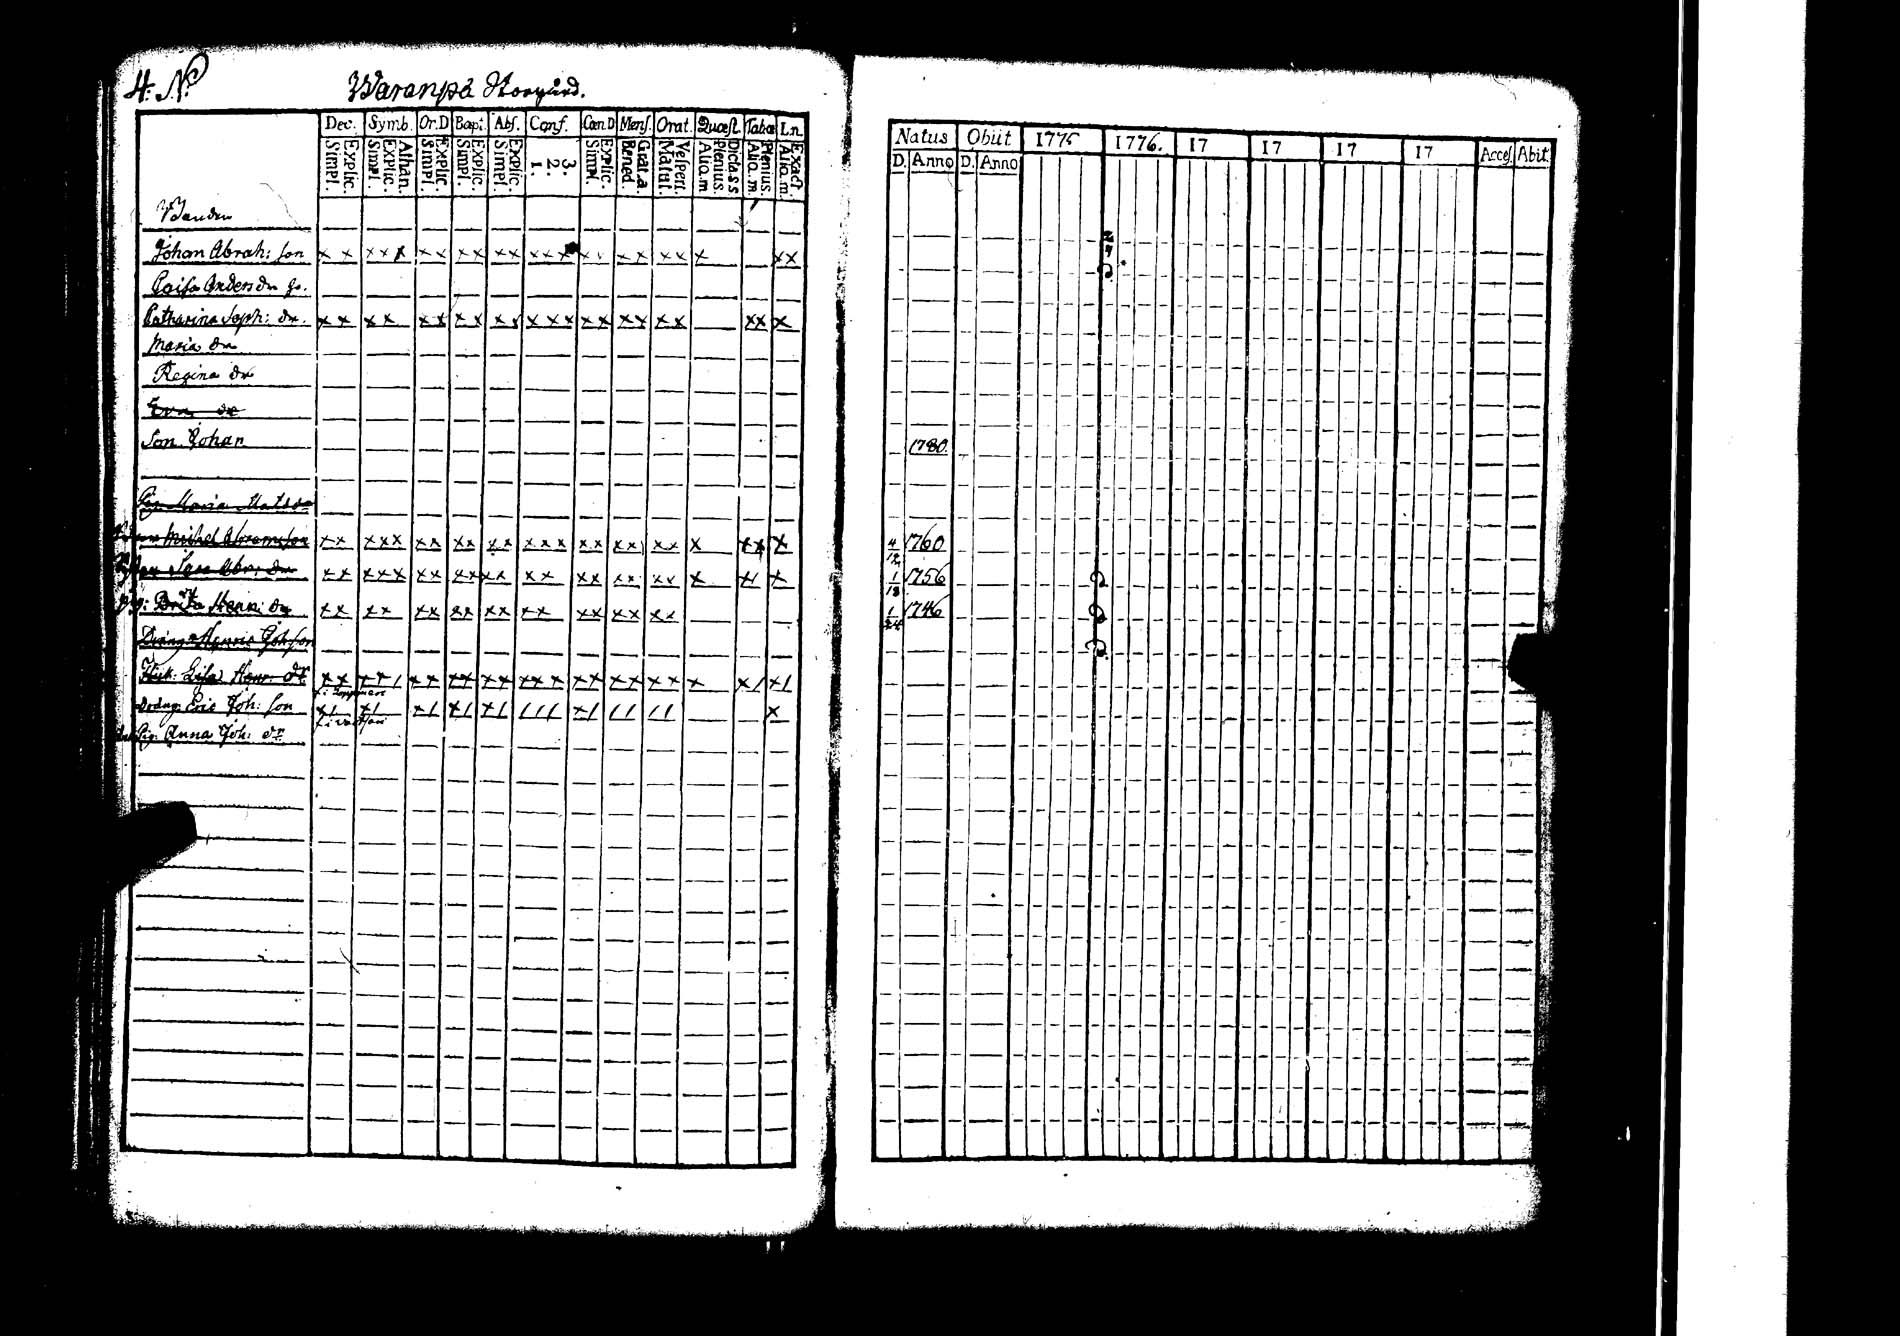 4. N.º
Waranpä Storgård.
Dec. Symb. Or.D Bapt. Abſ. Conf. Cœn.D Menſ. Orat. Quæſt. Tabœ Ln.
Simpl. Explic. Simpl. Explic. Athan. Simpl. Explic. Simpl. Explic. Simpl. Explic. 1. 2. 3. Simpl. Explic. Bened. Grat.a. Matut. Veſpert. Aliq.m Plenius. Dicta.s.s. Aliq.m Plenius. Aliq.m. Exact
Natus Obiit 1775 1776. 17 17 17 17 Acceſ. Abit.
D. Anno D. Anno
Bonden
Johan Abrah: ſon x x x x x x x x x x x x x x x x x x x x x x x
Caisa Anders dr
Catharina Soph: dr. x x x x x x x x x x x x x x x x x x x x x x
Maria dr
Regina dr
Eva dr
Son Johan 1780.
Pig. Maria Mats dr
Michel Abramsson x x x x x x x x x x x x x x x x x x x x x x x x x 4/12 1760
Sara Abr: dr x x x x x x x x x x x x x x x x x x x x x x x x 1/18 1756
pig: Brita Henr: dr x x x x x x x x x x x x x x x x x x 1/24 1746
Dräng Henric Joh ſon
Lisa Henr: dr
dräng Eric Joh: ſon
Pig: Anna Joh: dr